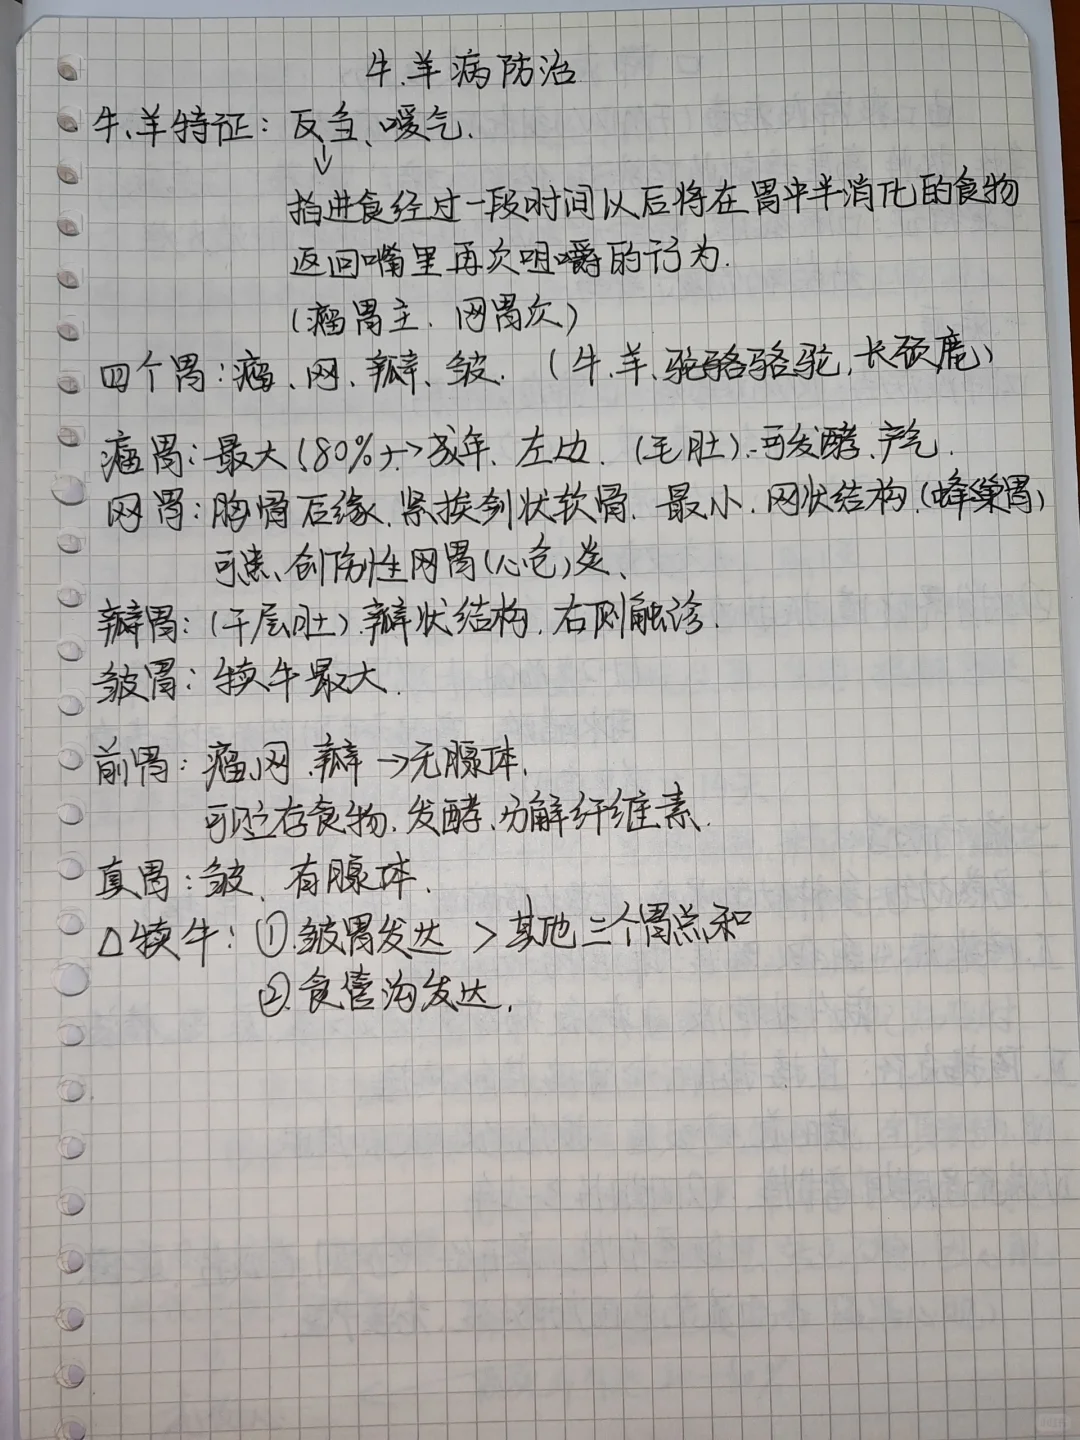 牛.羊病防治
牛、羊特征：反刍、嗳气.
↓
指进食经过一段时间以后将在胃中半消化的食物
返回嘴里再次咀嚼的行为.
(瘤胃主.网胃次)
四个胃：瘤、网、瓣、皱.(牛.羊、骆驼,长颈鹿)
瘤胃：最大(80%)→成年.左边.(毛肚).可发酵.产气.
网胃：胸骨后缘.紧挨剑状软骨.最小.网状结构.(蜂巢胃)
可患、创伤性网胃(心包)炎、
瓣胃：(千层肚).瓣状结构.右侧触诊.
皱胃：犊牛最大.
前胃：瘤、网.瓣→无腺体.
可贮存食物.发酵、分解纤维素.
真胃：皱、有腺体.
△犊牛：①.皱胃发达>其他三个胃总和
②.食管沟发达.